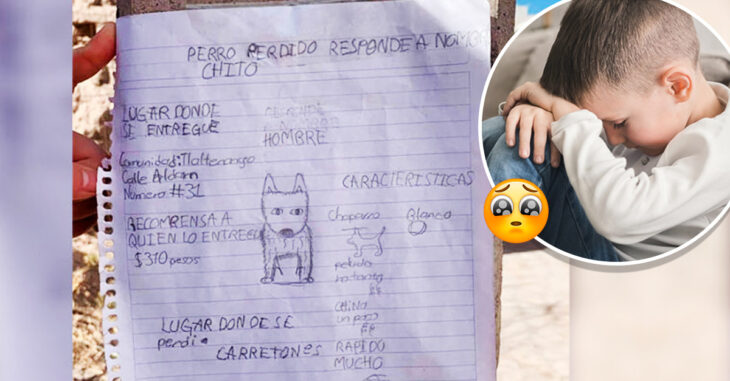 PERRO PERDIDO RESPONDE A NOMBRE
CHITO
LUGAR DONDE
SE ENTREGUE
HOMBRE
Comunidad: Tlaltenango
Calle Aldam
Número #31
RECOMPENSA A
QUIEN LO ENTREGUE
$310 pesos
CARACTERISTICAS
Chaparro
Blanco
peludo
CHINO
un poco
RAPIDO
MUCHO
LUGAR DONDE SE
perdi
CARRETONES